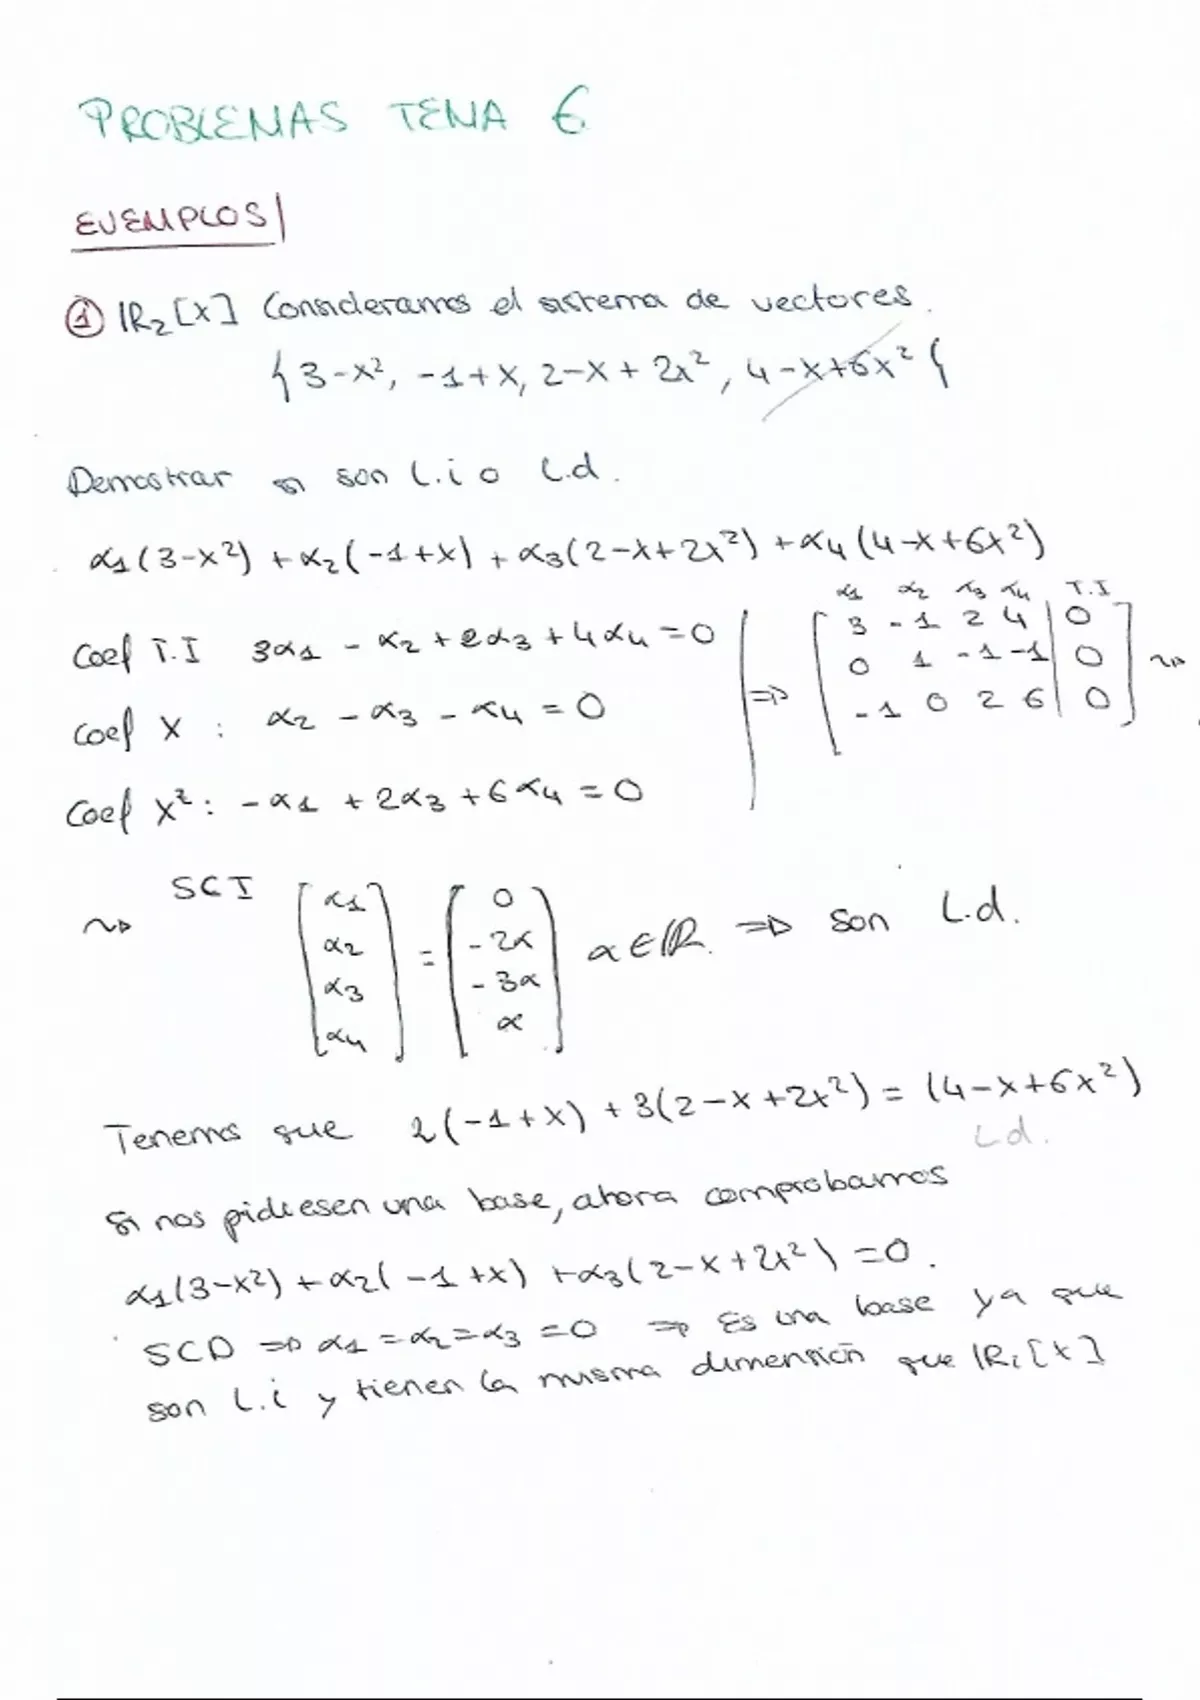 PROBLEMAS TEMA 6
EJEMPLOS
① IR₂[X] Consideramos el sistema de vectores.
{3-x², -1+x, 2-x+2x², 4-x+6x²{
Demostrar si son l.i o l.d.
α₁(3-x²)+α₂(-1+x)+α₃(2-x+2x²)+α₄(4-x+6x²)
Coef T.I 3α₁ - α₂ + 2α₃ + 4α₄ = 0
Coef X : α₂ - α₃ - α₄ = 0
Coef X²: -α₁ + 2α₃ + 6α₄ = 0
⇒
α₁ α₂ α₃ α₄ T.I
3 -1 2 4 | 0
0 1 -1 -1 | 0
-1 0 2 6 | 0
SCI
α₁ α₂ α₃ α₄ = 0 -2α -3α α
α∈IR. ⇒ son l.d.
Tenemos que 2(-1+x)+3(2-x+2x²) = (4-x+6x²)
L.d.
Si nos pidiesen una base, ahora comprobamos
α₁(3-x²)+α₂(-1+x)+α₃(2-x+2x²)=0.
SCD ⇒ α₁=α₂=α₃=0 ⇒ Es una base ya que
son l.i y tienen la misma dimensión que